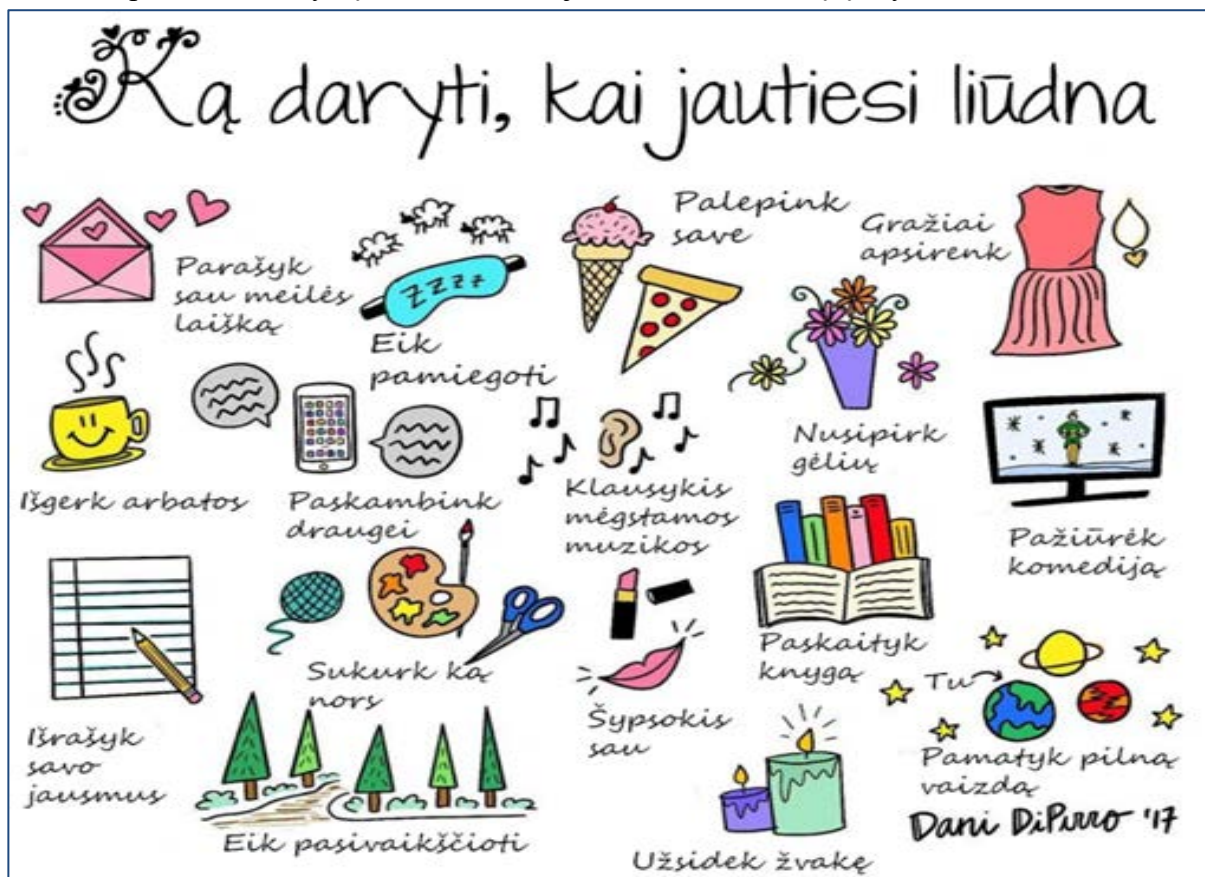 Ką daryti, kai jautiesi liūdna
Parašyk
sau meilės
laišką
zzzz
Eik
pamiegoti
Palepink
save
Gražiai
apsirenk
Išgerk arbatos
Paskambink
draugei
Klausykis
mėgstamos
muzikos
Nusipirk
gėlių
Pažiūrėk
komediją
Išrašyk
savo
jausmus
Sukurk ką
nors
Šypsokis
sau
Paskaityk
knygą
Tu
Pamatyk pilną
vaizdą
Eik pasivaikščioti
Užsidek žvakę
Dani DiPirro '17